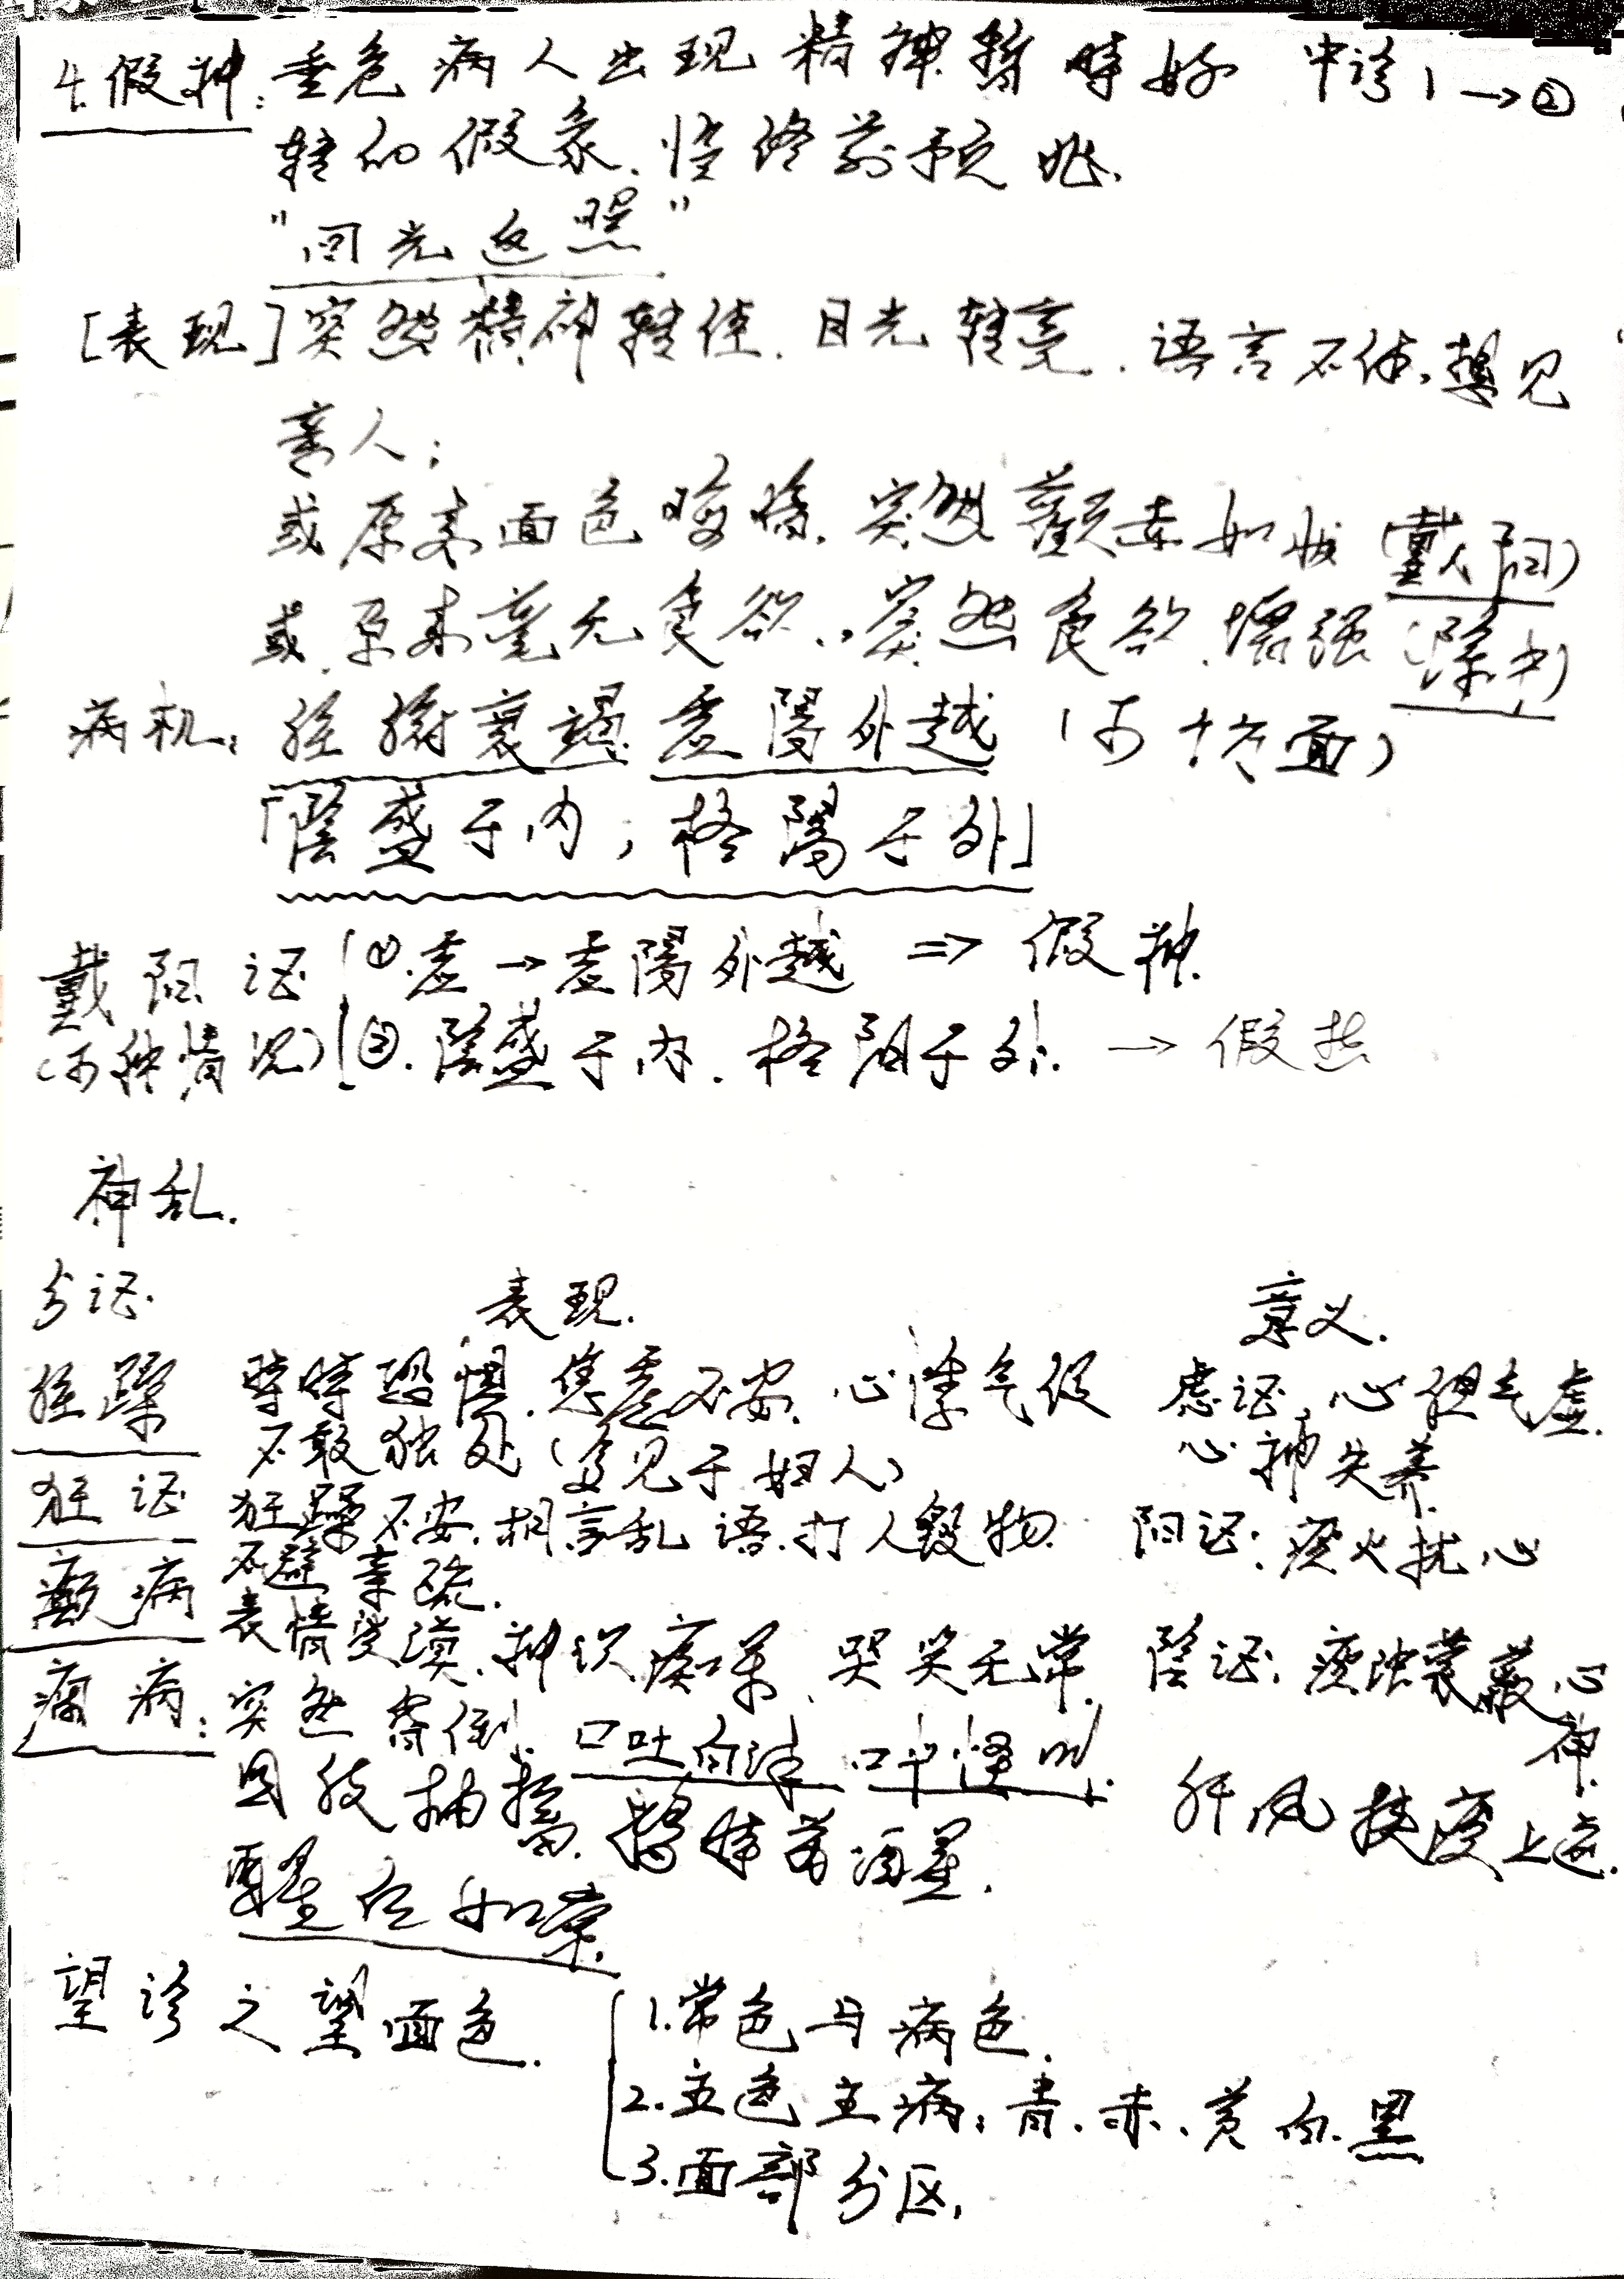 4.假神:垂危病人出现精神暂时好 中诊1→②
转的假象.临终前预兆.
"回光返照"
[表现]突然精神转佳.目光转亮.语言不休,想见
亲人;
或原来面色晦暗.突然颧赤如妆(戴阳)
或原来毫无食欲,突然食欲增强(除中)
病机:脏腑衰竭 虚陽外越(两方面)
「陰盛于内,格陽于外」
戴阳证 ①.虚→虚陽外越 ⇒ 假神.
(两种情况) ②.陰盛于内.格阳于外. → 假热
神乱.
分证. 表现. 意义.
脏躁 时时恐惧.焦虑不安.心悸气促 虚证,心胆气虚.
不敢独处(多见于妇人) 心神失养.
狂证 狂躁不安.胡言乱语.打人毁物. 阳证:痰火扰心
不避亲疏.
癫病 表情淡漠.神识痴呆.哭笑无常. 陰证:痰浊蒙蔽心神.
痫病:突然昏倒.口吐白沫 口中怪叫. 肝风挟痰上逆.
四肢抽搐.
醒后如常.
望诊之望面色.
1.常色与病色.
2.五色主病:青.赤、黄 白.黑
3.面部分区,